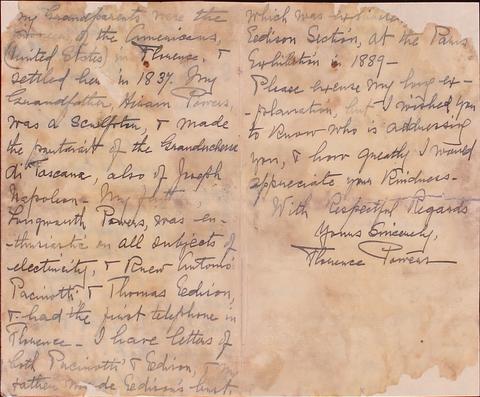 my Grandparents were the
of the Americans,
United States in Florence, &
settled here in 1837. My
Grandfather, Hiram Powers,
was a Sculptor, & made
the portrait of the Granduchesse
di Toscana, also of Joseph
Napoleon - My
Longworth Powers, was en-
-thusiastic on all subjects of
electricity, & Knew Antonio
Pacinotti & Thomas Eedison,
& had the first telephone in
Florence - I have letters of
both Pacinotti & Eedison, & my
father made Eedison's bust,
which was
Eedison Section, at the Paris
Exhibition in 1889 -
Please excuse my long ex-
-planation, but I wished you
to Know who is addressing
you, & how greatly I would
appreciate your Kindness -
With Respectful Regards
Yours Sincerely,
Florence Powers